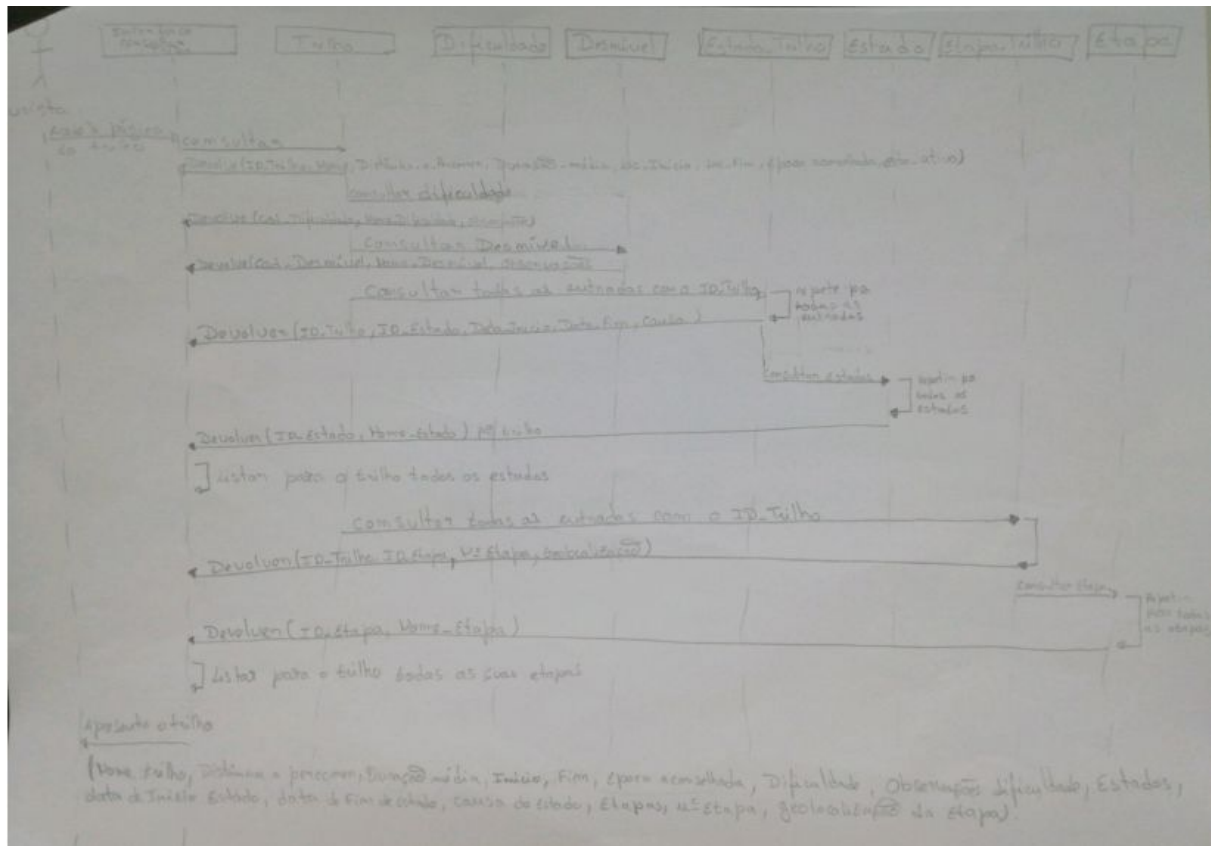 Trilho
Dificuldade
Desnível
Estado_Trilho
Estado
Etapa_Trilho
Etapa
consultar
Devolve (ID_Trilho, Nome, Distância a Percorrer, Duração média, Loc. Inicio, Loc. Fim, época aconselhada, ativo)
consultar dificuldade
Devolve (Cod_Dificuldade, Nome_Dificuldade, observações)
Consultar Desnível
Devolve (Cod_Desnível, Nome_Desnível, observações)
Consultar todas as entradas com o ID_Trilho
repete para
todas as
entradas
Devolver (ID_Trilho, ID_Estado, Data_Inicio, Data_Fim, Causa)
Consultar estados
repetir para
todos os
estados
Devolver (ID_Estado, Nome_estado) trilho
Listar para o trilho todos os estados
consultar todas as entradas com o ID_Trilho
Devolver (ID_Trilho, ID_Etapa, Nº Etapa, Geolocalização)
Consultar Etapa
Repetir
para todas
as etapas
Devolver (ID_Etapa, Nome_Etapa)
Listar para o trilho todas as suas etapas
Apresenta o trilho
(Nome trilho, Distância a percorrer, Duração média, Inicio, Fim, época aconselhada, Dificuldade, Observações dificuldade, Estados,
data de Inicio Estado, data de Fim de estado, causa do estado, Etapas, nº Etapa, geolocalização da etapa)